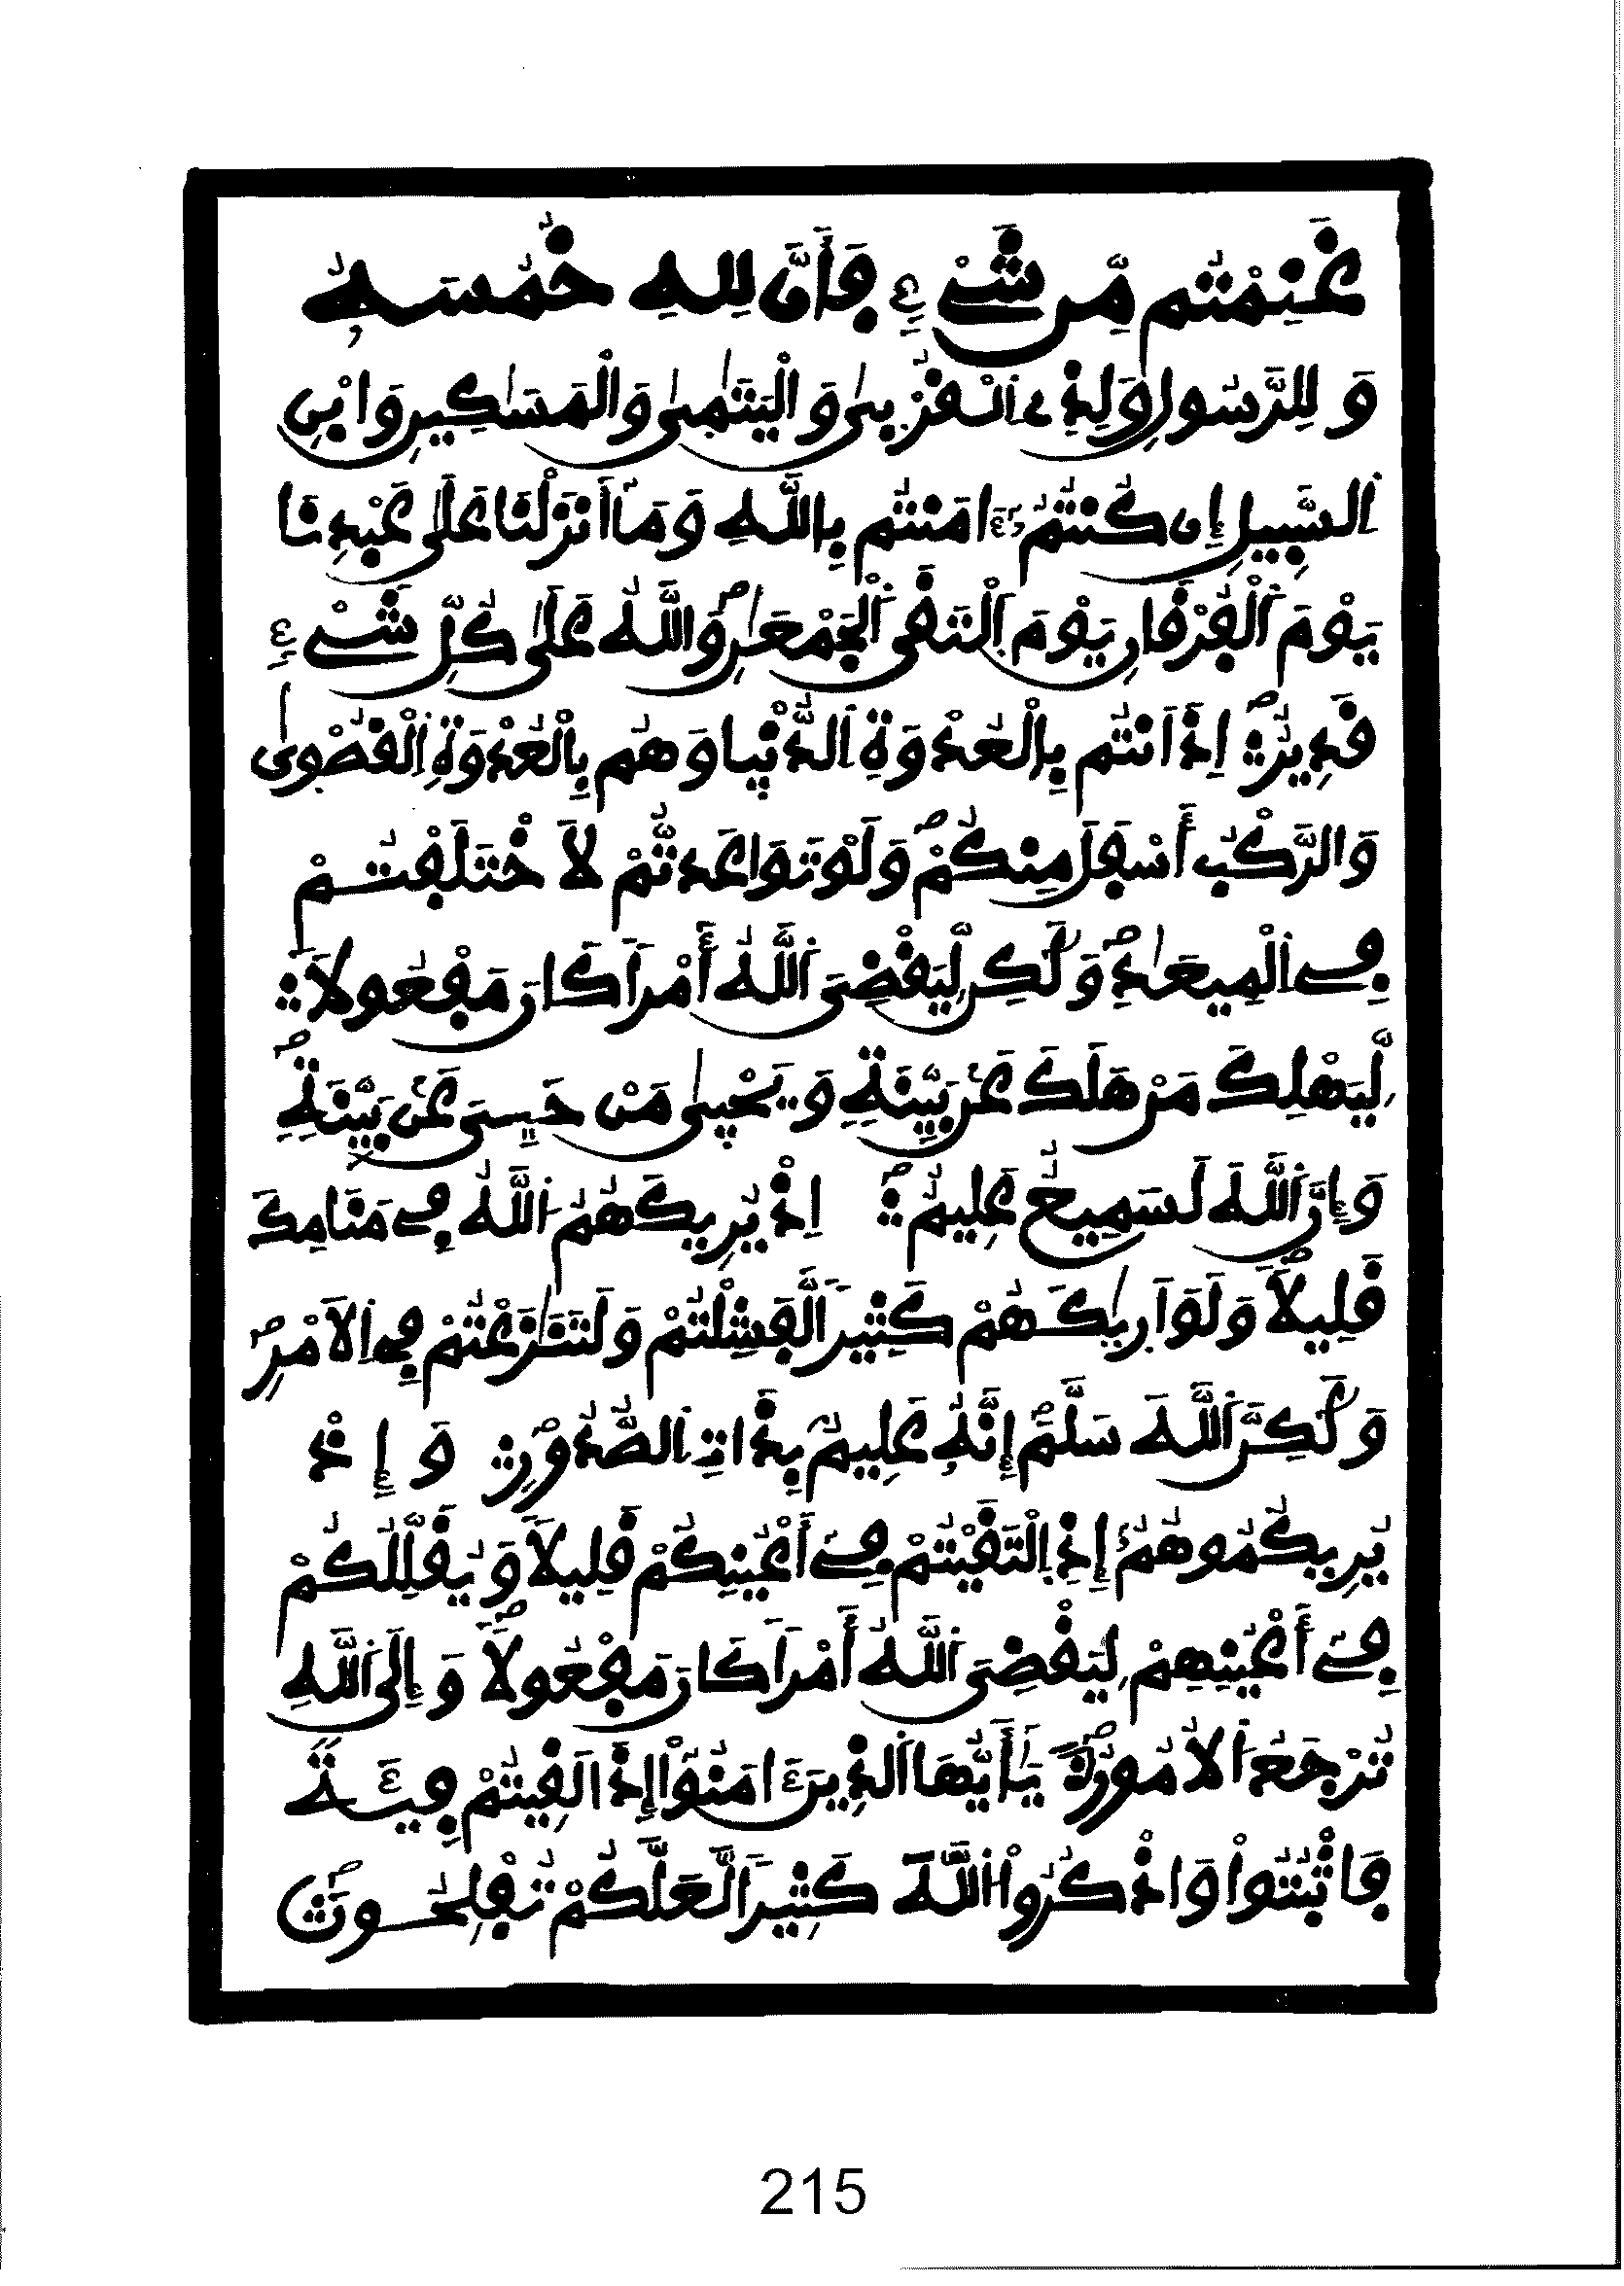 غَنِمْتُم مِّن شَےْءٍ فَأَنَّ لِلهِ خُمُسَهُۥ
وَلِلرَّسُولِ وَلِذِے اِ۬لْقُرْبىٰ وَالْيَتَٰمىٰ وَالْمَسَٰكِينِ وَابْنِ
اِ۬لسَّبِيلِ إِن كُنتُمُۥٓ ءَامَنتُم بِاللَّهِ وَمَآ أَنزَلْنَا عَلَىٰ عَبْدِنَا
يَوْمَ اَ۬لْفُرْقَانِ يَوْمَ اَ۬لْتَقَى اَ۬لْجَمْعَٰنِ وَاللَّهُ عَلَىٰ كُلِّ شَےْءٍ
قَدِيرٌ اِذَ اَنتُم بِالْعُدْوَةِ اِ۬لدُّنْيٜا وَهُم بِالْعُدْوَةِ اِ۬لْقُصْوىٰ
وَالرَّكْبُ أَسْفَلَ مِنكُمْ وَلَوْ تَوَاعَدتُّمْ لَاخْتَلَفْتُمْ
فِے اِ۬لْمِيعَٰدِ وَلَٰكِن لِّيَقْضِيَ اَ۬للَّهُ أَمْراً كَانَ مَفْعُولاً
لِّيَهْلِكَ مَنْ هَلَكَ عَنۢ بَيِّنَةٍ وَيَحْيٜىٰ مَنْ حَيِيَ عَنۢ بَيِّنَةٍ
وَإِنَّ اَ۬للَّهَ لَسَمِيعٌ عَلِيمٌ اِذْ يُرِيكَهُمُ اُ۬للَّهُ فِے مَنَامِكَ
قَلِيلاً وَلَوَ اَرٜيٰكَهُمْ كَثِيراً لَّفَشِلْتُمْ وَلَتَنَٰزَعْتُمْ فِے اِ۬لَامْرِ
وَلَٰكِنَّ اَ۬للَّهَ سَلَّمَ إِنَّهُۥ عَلِيمٌۢ بِذَاتِ اِ۬لصُّدُورِ وَإِذْ
يُرِيكُمُوهُمُۥٓ إِذِ اِ۬لْتَقَيْتُمْ فِےٓ أَعْيُنِكُمْ قَلِيلاً وَيُقَلِّلُكُمْ
فِےٓ أَعْيُنِهِمْ لِيَقْضِيَ اَ۬للَّهُ أَمْراً كَانَ مَفْعُولاً وَإِلَى اَ۬للَّهِ
تُرْجَعُ اُ۬لُامُورُ يَٰٓأَيُّهَا اَ۬لذِينَ ءَامَنُوٓاْ إِذَا لَقِيتُمْ فِئَةً
فَاثْبُتُواْ وَاذْكُرُواْ اُ۬للَّهَ كَثِيراً لَّعَلَّكُمْ تُفْلِحُونَ
215